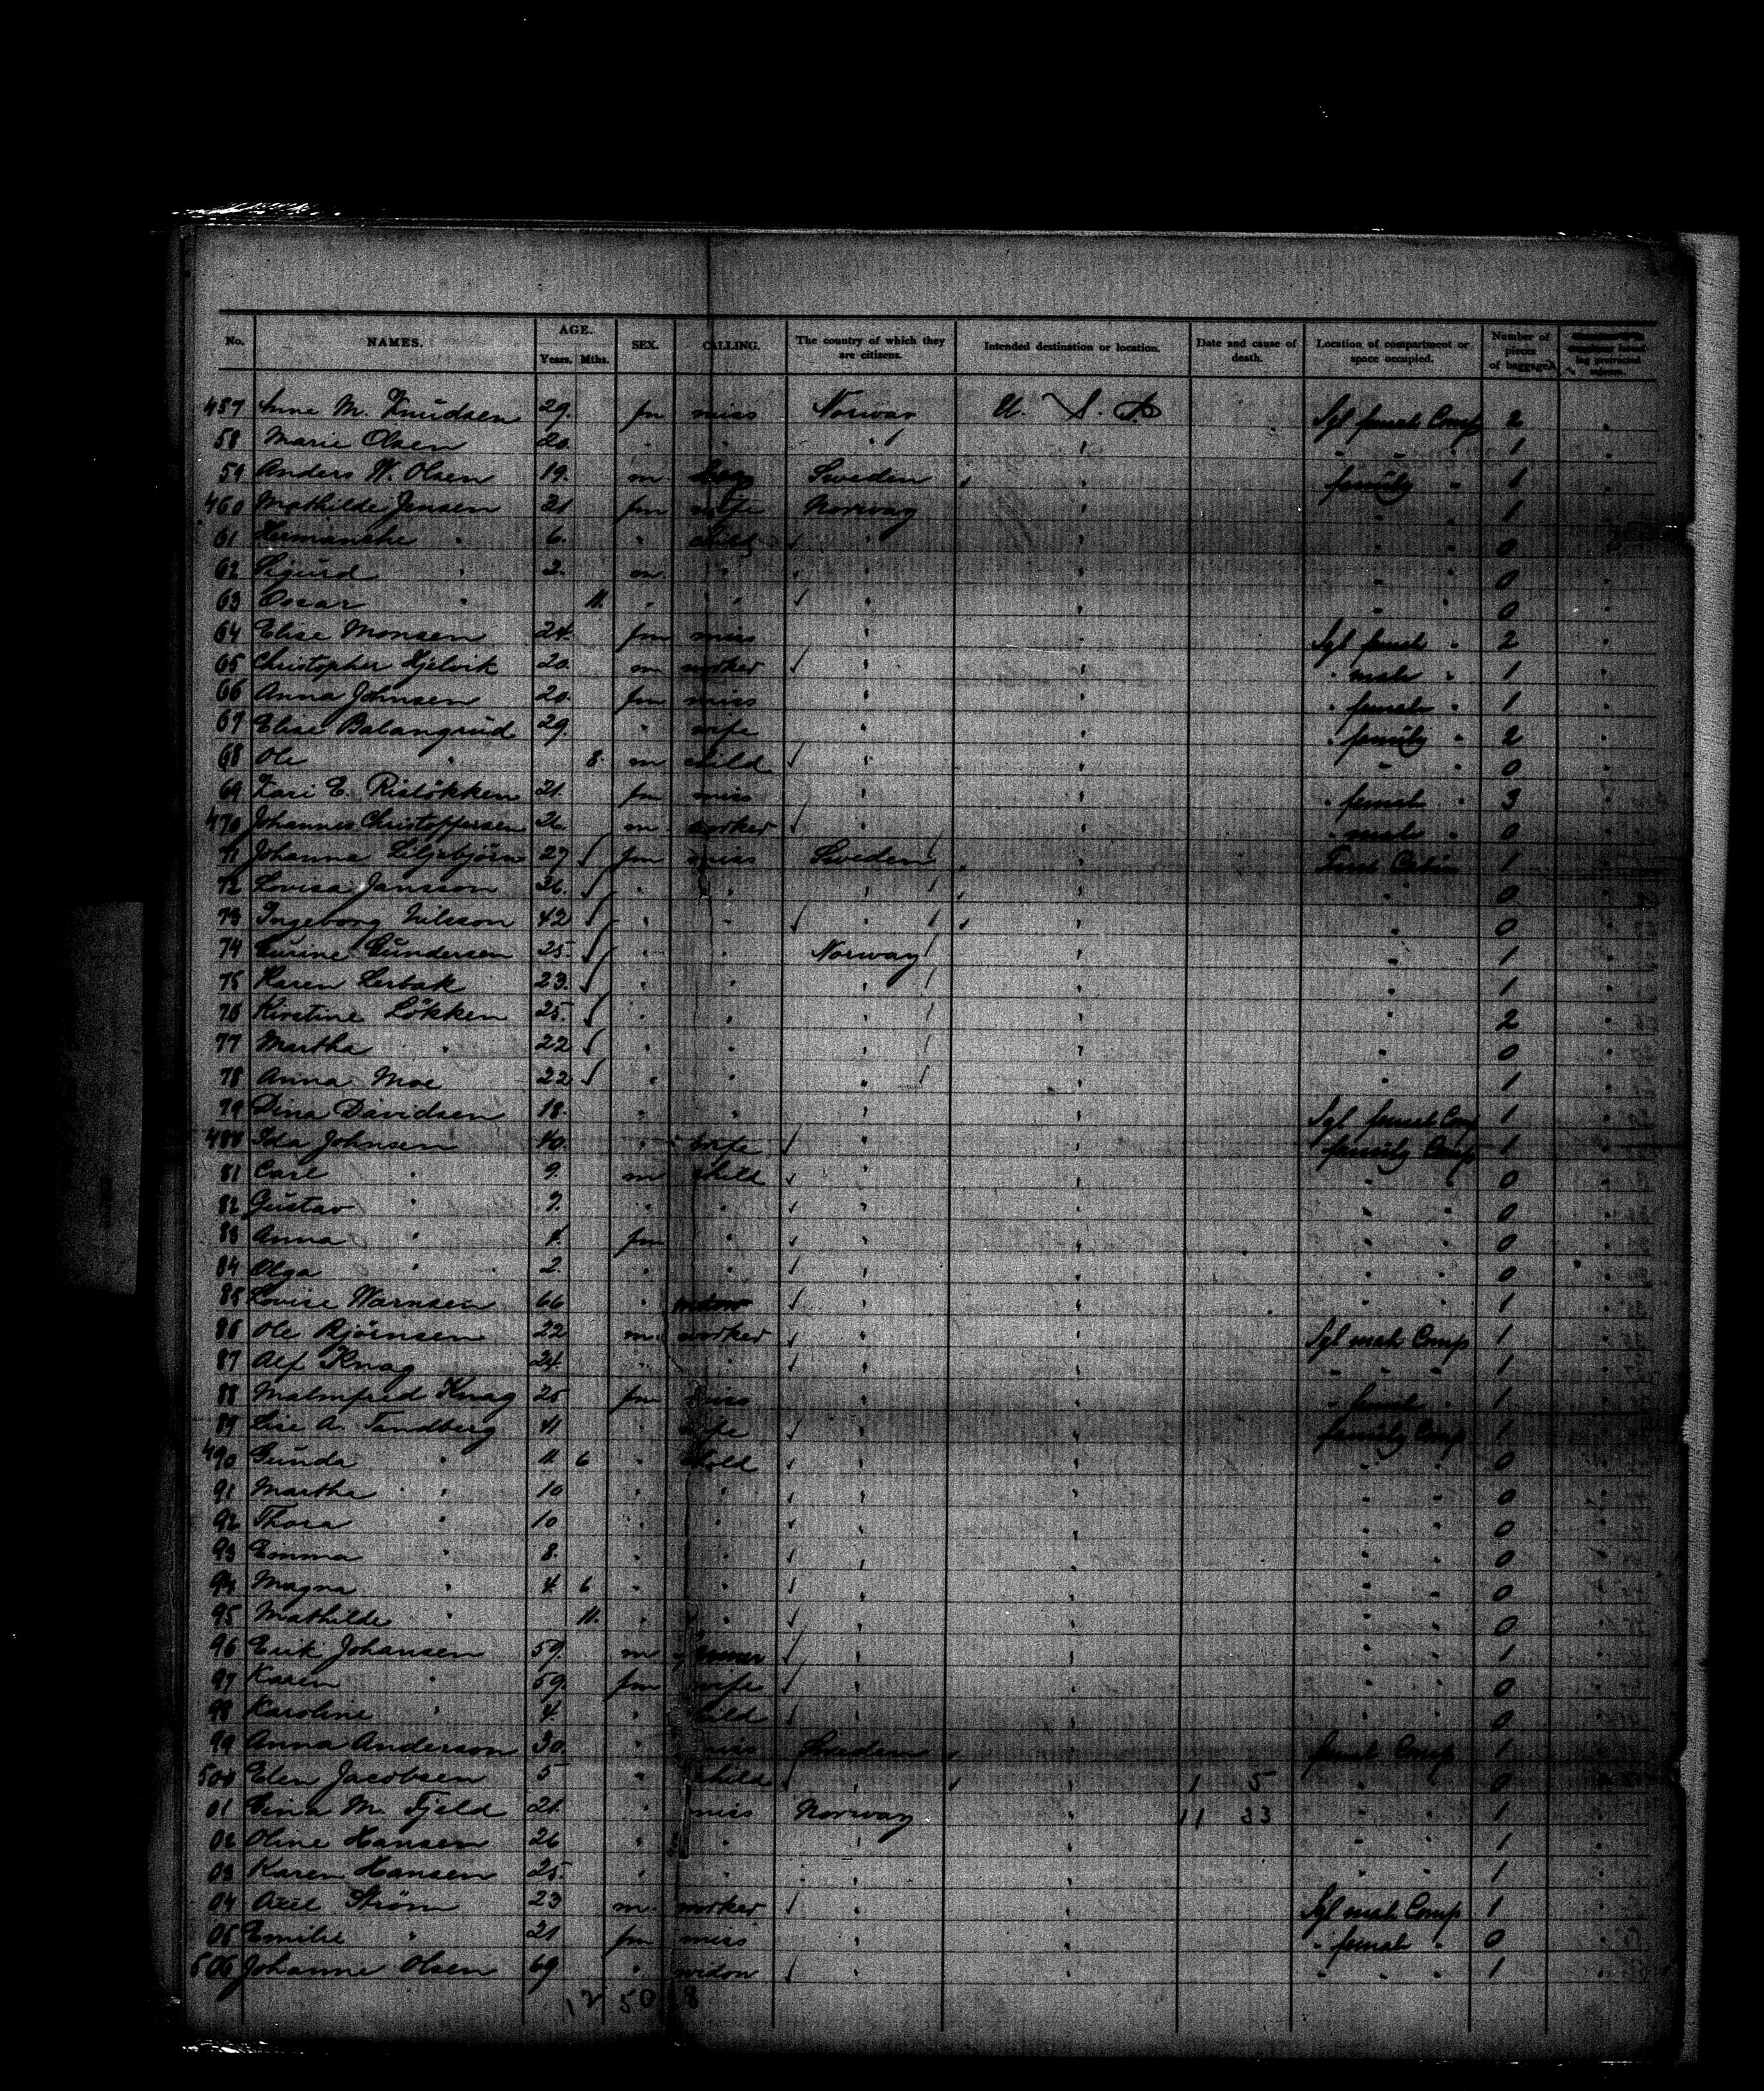 No. NAMES. AGE. Years. Mths. SEX. CALLING. The country of which they are citizens. Intended destination or location. Date and cause of death. Location of compartment or space occupied. Number of pieces of baggage.
457 Anne M. Knudsen 29. fm miss Norway U. S. A. Sgl female Comp 2
58 Marie Olsen 20. " " " " " " " 1
59 Anders W. Olsen 19. m Sweden " family " 1
460 Mathilde Jensen 21 fm wife Norway " " " 1
61 " 6. " child " " " " 0
62 Sigurd " 2. m " " " " " 0
63 Oscar " 11. " " " " " " 0
64 Elise Monsen 24. fm miss " " Sgl female " 2
65 Christopher Hjelvik 20. m worker " " " male " 1
66 Anna Johnsen 20. fm miss " " " female " 1
67 Elise Balangrud 29. " wife " " " family " 2
68 Ole " 8. m child " " " " 0
69 Kari E. Rislökken 21. fm miss " " " female " 3
470 Johannes Christoffersen 26. m worker " " " male " 0
71 Johanna Liljebjörn 27 fm miss Sweden " Cabin 1
72 Lovisa Jansson 26. " " " " " 0
73 Ingeborg Nilsson 42 " " " " " 0
74 Gundersen 25. " " Norway " " 1
75 Karen Lerbak 23. " " " " " 1
76 Kirstine Lökken 25. " " " " " 2
77 Martha " 22 " " " " " 0
78 Anna Moe 22 " " " " " 1
79 Dina Davidsen 18. " " " " Sgl female Comp 1
480 Ida Johnsen 40. " wife " " family Comp 1
81 Carl " 9. m child " " " " 0
82 Gustav " 7. " " " " " " 0
83 Anna " 4. fm " " " " " 0
84 Olga " 2. " " " " " " 0
85 Lovise Warnsen 66 " widow " " " " 1
86 Ole Bjørnsen 22 m worker " " Sgl male Comp 1
87 Alf Knag 24. " " " " " " " 1
88 Malmfred Knag 25 fm miss " " " female " 1
89 Lise A. Tandberg 41 " wife " " family Comp 1
490 Gunda " 11. 6 " child " " " " 0
91 Martha " 10 " " " " " " 0
92 Thora " 10 " " " " " " 0
93 Emma " 8. " " " " " " 0
94 Magna " 4. 6 " " " " " " 0
95 Mathilde " 11. " " " " " " 0
96 Erik Johansen 59. m " " " " 1
97 Karen " 59. fm wife " " " " 0
98 Karoline " 4. " child " " " " 0
99 Anna Anderson 30. " miss Sweden " female Comp 1
500 Elen Jacobsen 5 " child " " 1 5 " " 0
01 M. Fjeld 21. " miss Norway " 11 33 " " 1
02 Oline Hansen 26 " " " " " " 1
03 Karen Hansen 25. " " " " " " 1
04 Strøm 23 m. worker " " Sgl male Comp 1
05 Emilie " 21 fm miss " " " female " 0
506 Johanne Olsen 69 " widow " " " " " 1
12 50 8